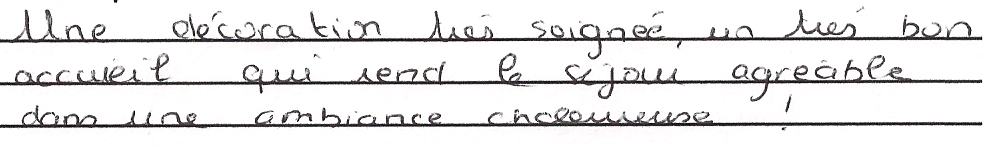 Une décoration très soignée, un très bon
accueil qui rend le séjour agréable
dans une ambiance chaleureuse !